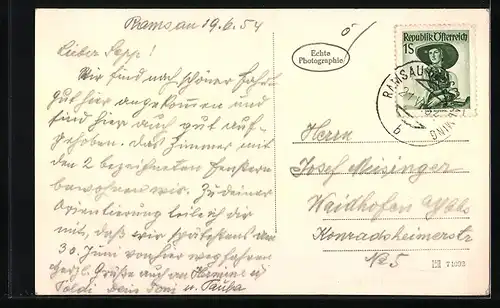 Ramsau 19.6.54
Lieber Sepp!
Wir sind nach schöner Fahrt
gut hier angekommen und
sind hier auch gut auf-
gehoben. Das Zimmer mit
den 2 bezeichneten Fenstern
bewohnen wir. Zu deiner
Orientierung teile ich dir
mit, daß wir spätestens am
30. Juni von hier wegfahren
Herzl. Grüße auch an Hermine u
Poldi Dein Toni u.
Echte
Photographie
Republik Österreich
1S
RAMSAU
b
Herrn
Josef Meisinger
Waidhofen a/Ybbs
Konradsheimerstr
No 5